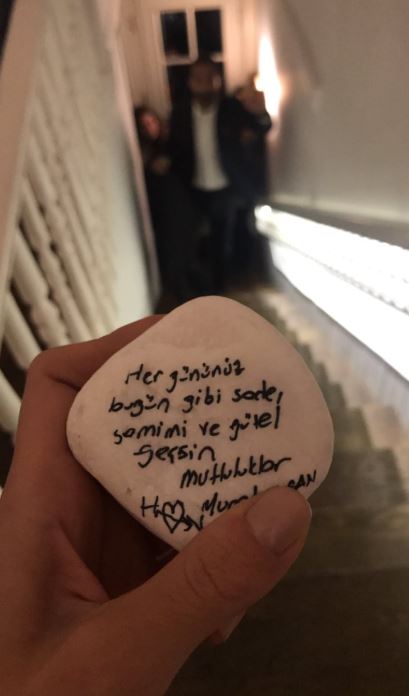 Her gününüz
bugün gibi sade,
samimi ve güzel
geçsin
mutluluklar
H ♡ N